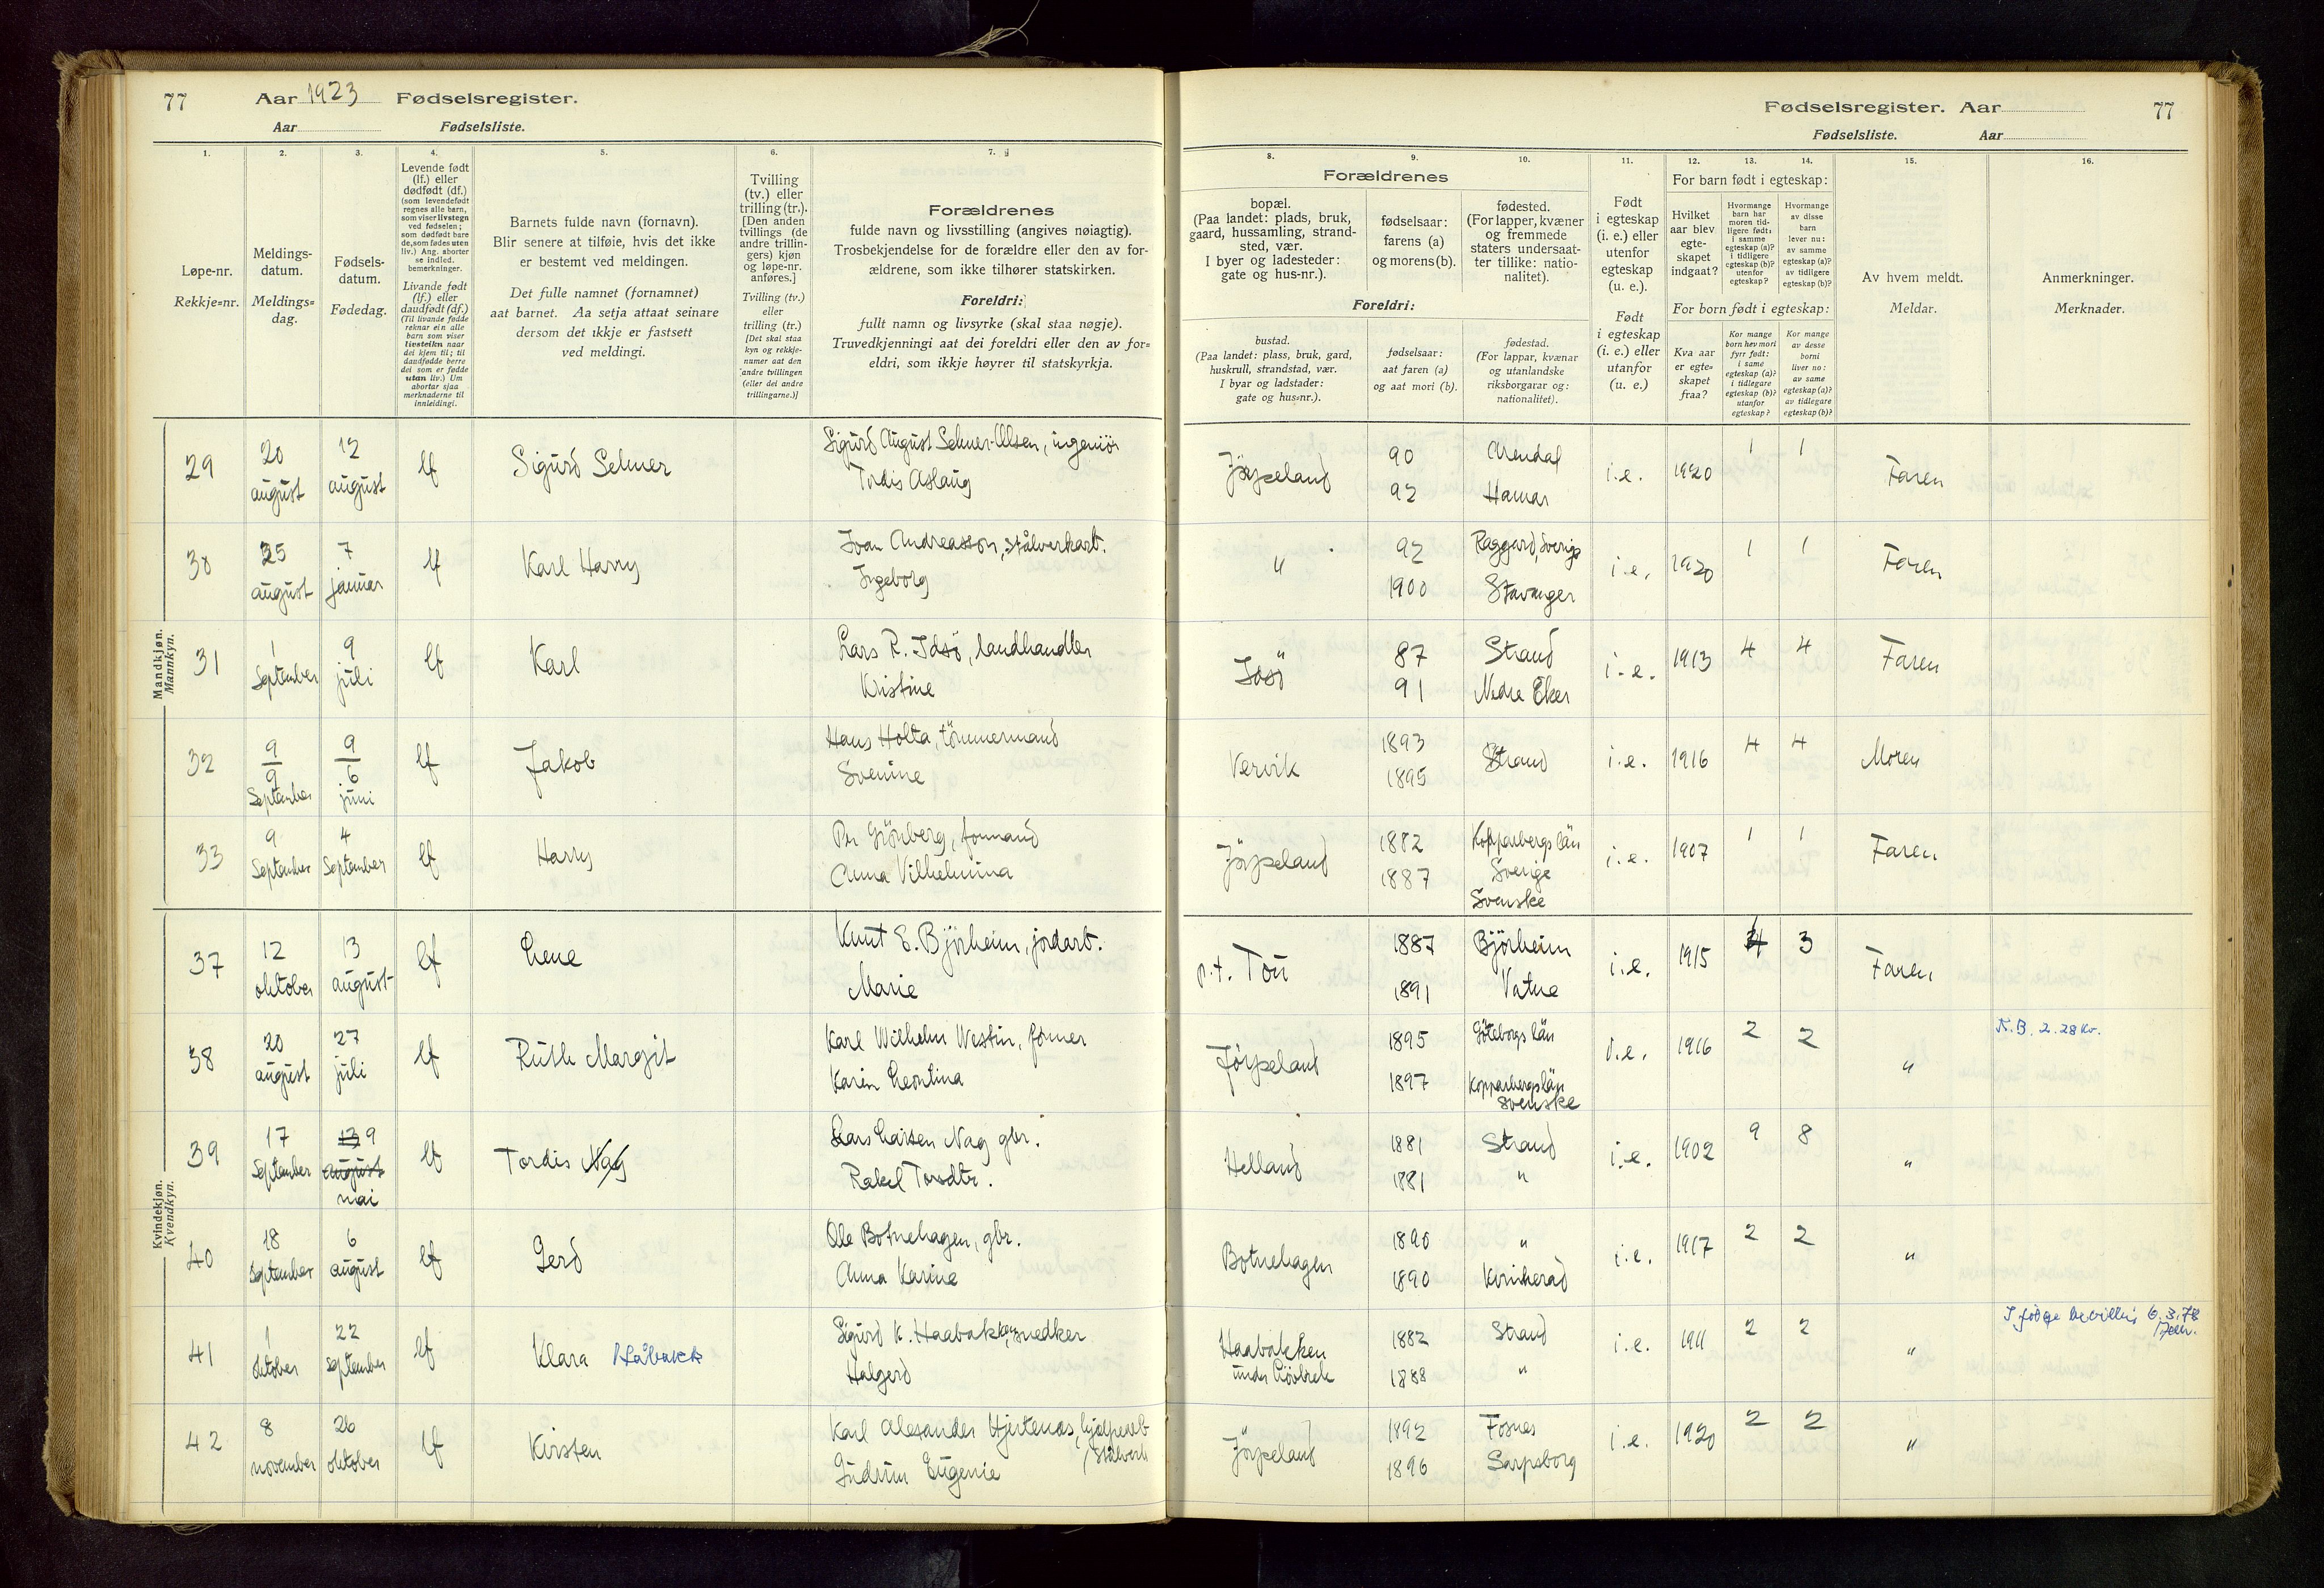 77 Aar 1923 Fødselsregister.
Aar Fødselsliste.
1. 2. 3. 4. 5. 6. 7.
Løpe-nr.
Rekkje=nr.
Meldings-
datum.
Meldings=
dag.
Fødsels-
datum.
Fødedag.
Levende født
(lf.) eller
dødfødt (df.)
(som levendefødt
regnes alle barn,
som viser livstegn
ved fødselen;
som dødfødt bare
de, som fødes uten
liv.) Ang. aborter
se indled.
bemerkninger.
Livande født
(lf.) eller
daudfødt (df.)
(Til livande fødde
reknar ein alle
barn som viser
livsteikn naar
dei kjem til; til
daudfødde berre
dei som er fødde
utan liv.) Um
abortar sjaa
merknaderne til
innleidingi.
Barnets fulde navn (fornavn).
Blir senere at tilføie, hvis det ikke
er bestemt ved meldingen.
Det fulle namnet (fornamnet)
aat barnet. Aa setja attaat seinare
dersom det ikkje er fastsett
ved meldingi.
Tvilling
(tv.) eller
trilling (tr.).
[Den anden
tvillings (de
andre trillin-
gers) kjøn
og løpe-nr.
anføres.]
Tvilling (tv.)
eller
trilling (tr.)
[Det skal staa
kyn og rekkje-
numer aat den
andre tvillingen
(eller dei andre
trillingarne.)]
Forældrenes
fulde navn og livsstilling (angives nøiagtig).
Trosbekjendelse for de forældre eller den av for-
ældrene, som ikke tilhører statskirken.
Foreldri:
fullt namn og livsyrke (skal staa nøgje).
Truvedkjenningi aat dei foreldri eller den av for=
eldri, som ikkje høyrer til statskyrkja.
Mandkjøn.
Mannkyn.
29 20 august 12 august lf Sigurd Selmer Sigurd August Selmer-Olsen, ingeniör
Tordis Aslaug
30 25 august 7 januar lf Karl Harry Ivan Andreasson, stålverksarb.
Ingeborg
31 1 September 9 juli lf Karl Lars R. Idsö, landhandler
Kristine
32 9 9 September 9 6 juni lf Jakob Hans Holta, tömmermand
Svenine
33 9 September 4 September lf Harry Per Grönberg, formand
Anna Vilhelmina
Kvindekjøn.
Kvendkyn.
37 12 oktober 13 august lf Lene Knut E. Björheim, jordarb.
Marie
38 20 august 27 juli lf Ruth Margit Karl Wilhelm Westin, former
Karin Leontina
39 17 September 13 9 august mai lf Tordis Nag Lars Larsen Nag gbr.
Rakel Tordtr.
40 18 September 6 august lf Gerd Ole Botnehagen, gbr.
Anna Karine
41 1 oktober 22 September lf Klara Håbakk Sigurd K. Haabakken, snedker
Halgerd
42 8 november 26 oktober lf Kirsten Karl Alexander Hjertenæs, hjælpearb.
Stålverk
Gudrun Eugenie
Fødselsregister. Aar 77
Fødselsliste. Aar
8. 9. 10. 11. 12. 13. 14. 15. 16.
Forældrenes
bopæl.
(Paa landet: plads, bruk,
gaard, hussamling, strand-
sted, vær.
I byer og ladesteder:
gate og hus-nr.).
fødselsaar:
farens (a)
og morens (b).
fødested.
(For lapper, kvæner
og fremmede
staters undersaat-
ter tillike: natio-
nalitet).
Foreldri:
bustad.
(Paa landet: plass, bruk, gard,
huskrull, strandstad, vær.
I byar og ladstader:
gate og hus=nr.).
fødselsaar:
aat faren (a)
og aat mori (b).
fødestad.
(For lappar, kvænar
og utanlandske
riksborgarar og:
nationalitet).
Født
i egteskap
(i. e.) eller
utenfor
egteskap
(u. e.).
Født
i egteskap
(i. e.) eller
utanfor
(u. e.)
For barn født i egteskap:
Hvilket
aar blev
egte-
skapet
indgaat?
Hvormange
barn har
moren tid-
ligere født:
i samme
egteskap (a)?
i tidligere
egteskap (b)?
utenfor
egteskap?
Hvormange
av disse
barn
lever nu:
av samme
egteskap (a)?
av tidligere
egteskap (b)?
For born født i egteskap:
Kva aar
er egte=
skapet
fraa?
Kor mange
born hev mori
fyrr født:
i same
egteskap (a)?
i tidlegare
egteskap (b)?
utanfor
egteskap?
Kor mange
av desse
borni
liver no:
av same
egteskap (a)?
av tidlegare
egteskap (b)?
Av hvem meldt.
Meldar.
Anmerkninger.
Merknader.
Jörpeland 90 Arendal i.e. 1920 1 1 Faren
92 Hamar
" 92 Raggerd, Sverige i.e. 1920 1 1 Faren
1900 Stavanger
Idsö 87 Strand i.e. 1913 4 4 Faren
91 Nedre Eker
Vervik 1893 Strand i.e. 1916 4 4 Moren
1895
Jörpeland 1882 Kopparbergs län i.e. 1907 1 1 Faren
1887 Sverige
Svenske
p.t. Tou 1887 Björheim i.e. 1915 3 Faren
1891 Vatne
Jörpeland 1895 Göteborgs län i.e. 1916 2 2 " K.B. 2. 28 kv.
1897 Kopparbergslän
svenske
Helland 1881 Strand i.e. 1902 9 8 "
1881 "
Botnehagen 1890 " i.e. 1917 2 2 "
1890 Kvinherad
Haabakken 1882 Strand i.e. 1911 2 2 " 6.3.78
under 1888 "
Jörpeland 1892 Fosnes i.e. 1920 2 2 "
1896 Sarpsborg